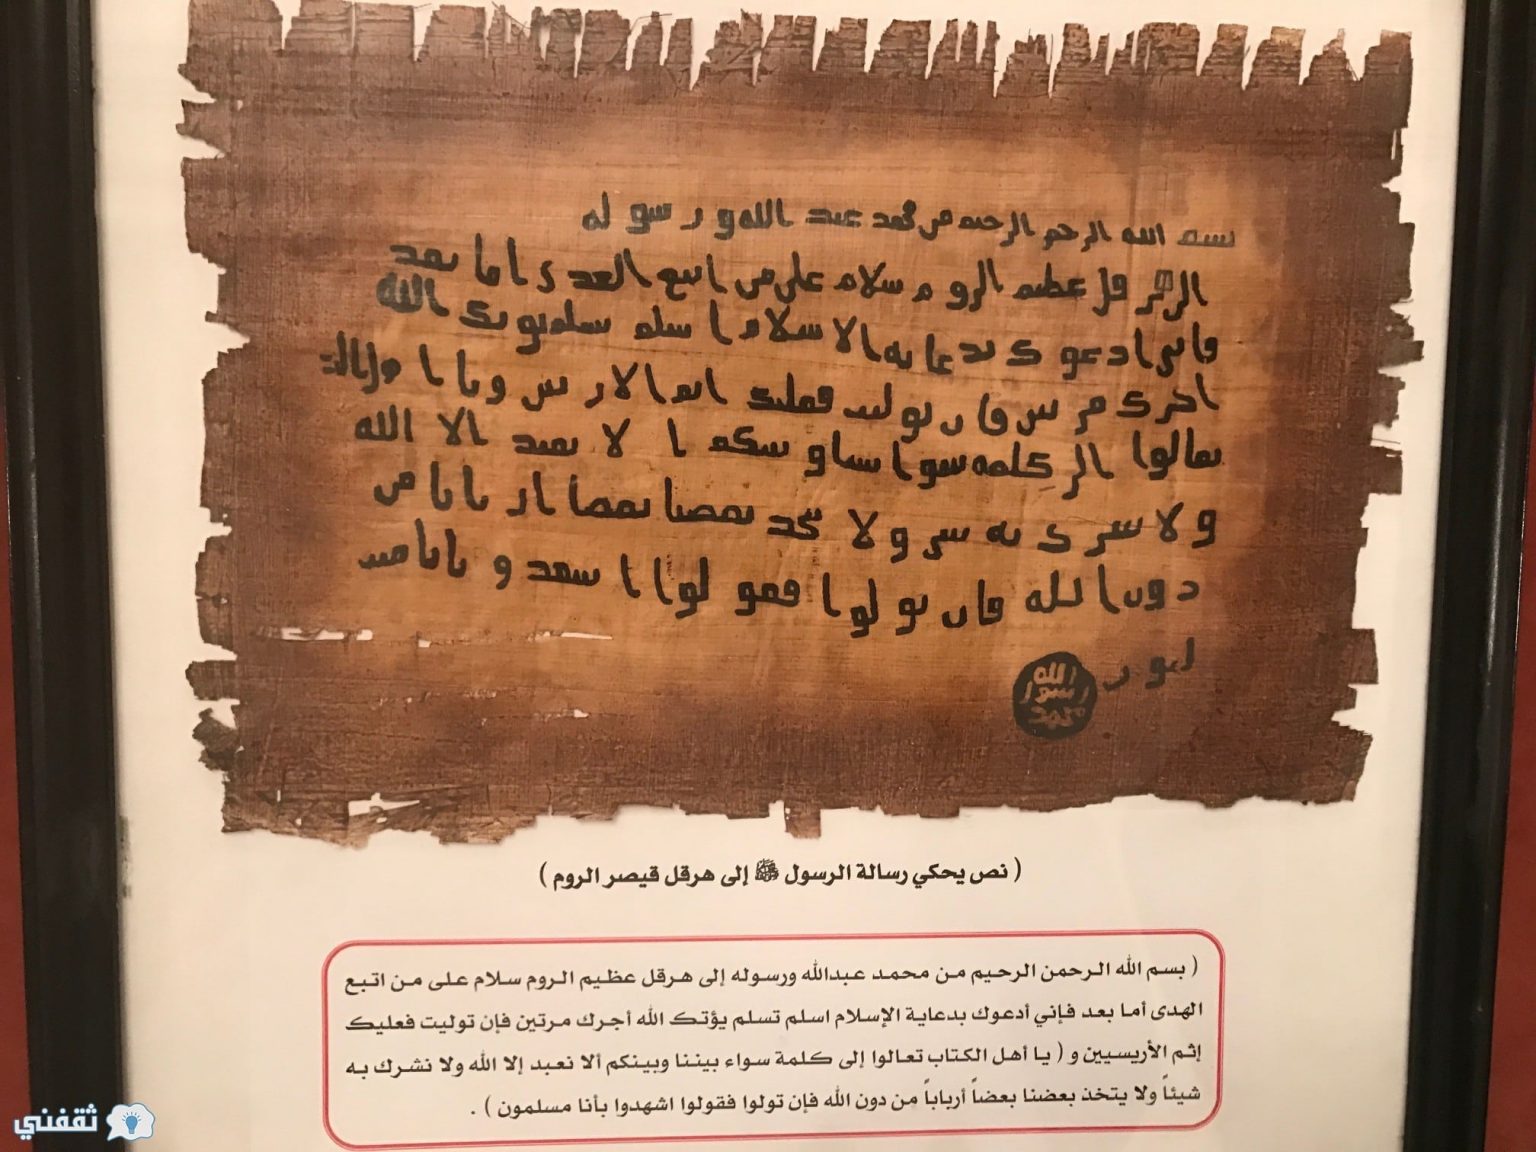 بسم الله الرحمن الرحيم من محمد عبد الله ورسوله
الى هرقل عظيم الروم سلام على من اتبع الهدى اما بعد
فانى ادعوك بدعايه الاسلام اسلم تسلم يوتك الله
اجرك مرتين فان توليت فعليك اثم الاريسين ويا اهل
تعالوا الى كلمه سوا بيننا وبينكم ا لا نعبد الا الله
ولا نشرك به شي ولا يتخذ بعضنا بعضا اربابا من
دون الله فان تولوا فقولوا اشهدوا بانا مسلمون
الله
رسول
محمد
( نص يحكي رسالة الرسول ﷺ إلى هرقل قيصر الروم )
( بسم الله الرحمن الرحيم من محمد عبدالله ورسوله إلى هرقل عظيم الروم سلام على من اتبع
الهدى أما بعد فإني أدعوك بدعاية الإسلام اسلم تسلم يؤتك الله أجرك مرتين فإن توليت فعليك
إثم الأريسيين و ( يا أهل الكتاب تعالوا إلى كلمة سواء بيننا وبينكم ألا نعبد إلا الله ولا نشرك به
شيئاً ولا يتخذ بعضنا بعضاً أرباباً من دون الله فإن تولوا فقولوا اشهدوا بأنا مسلمون ) .
ثقفني